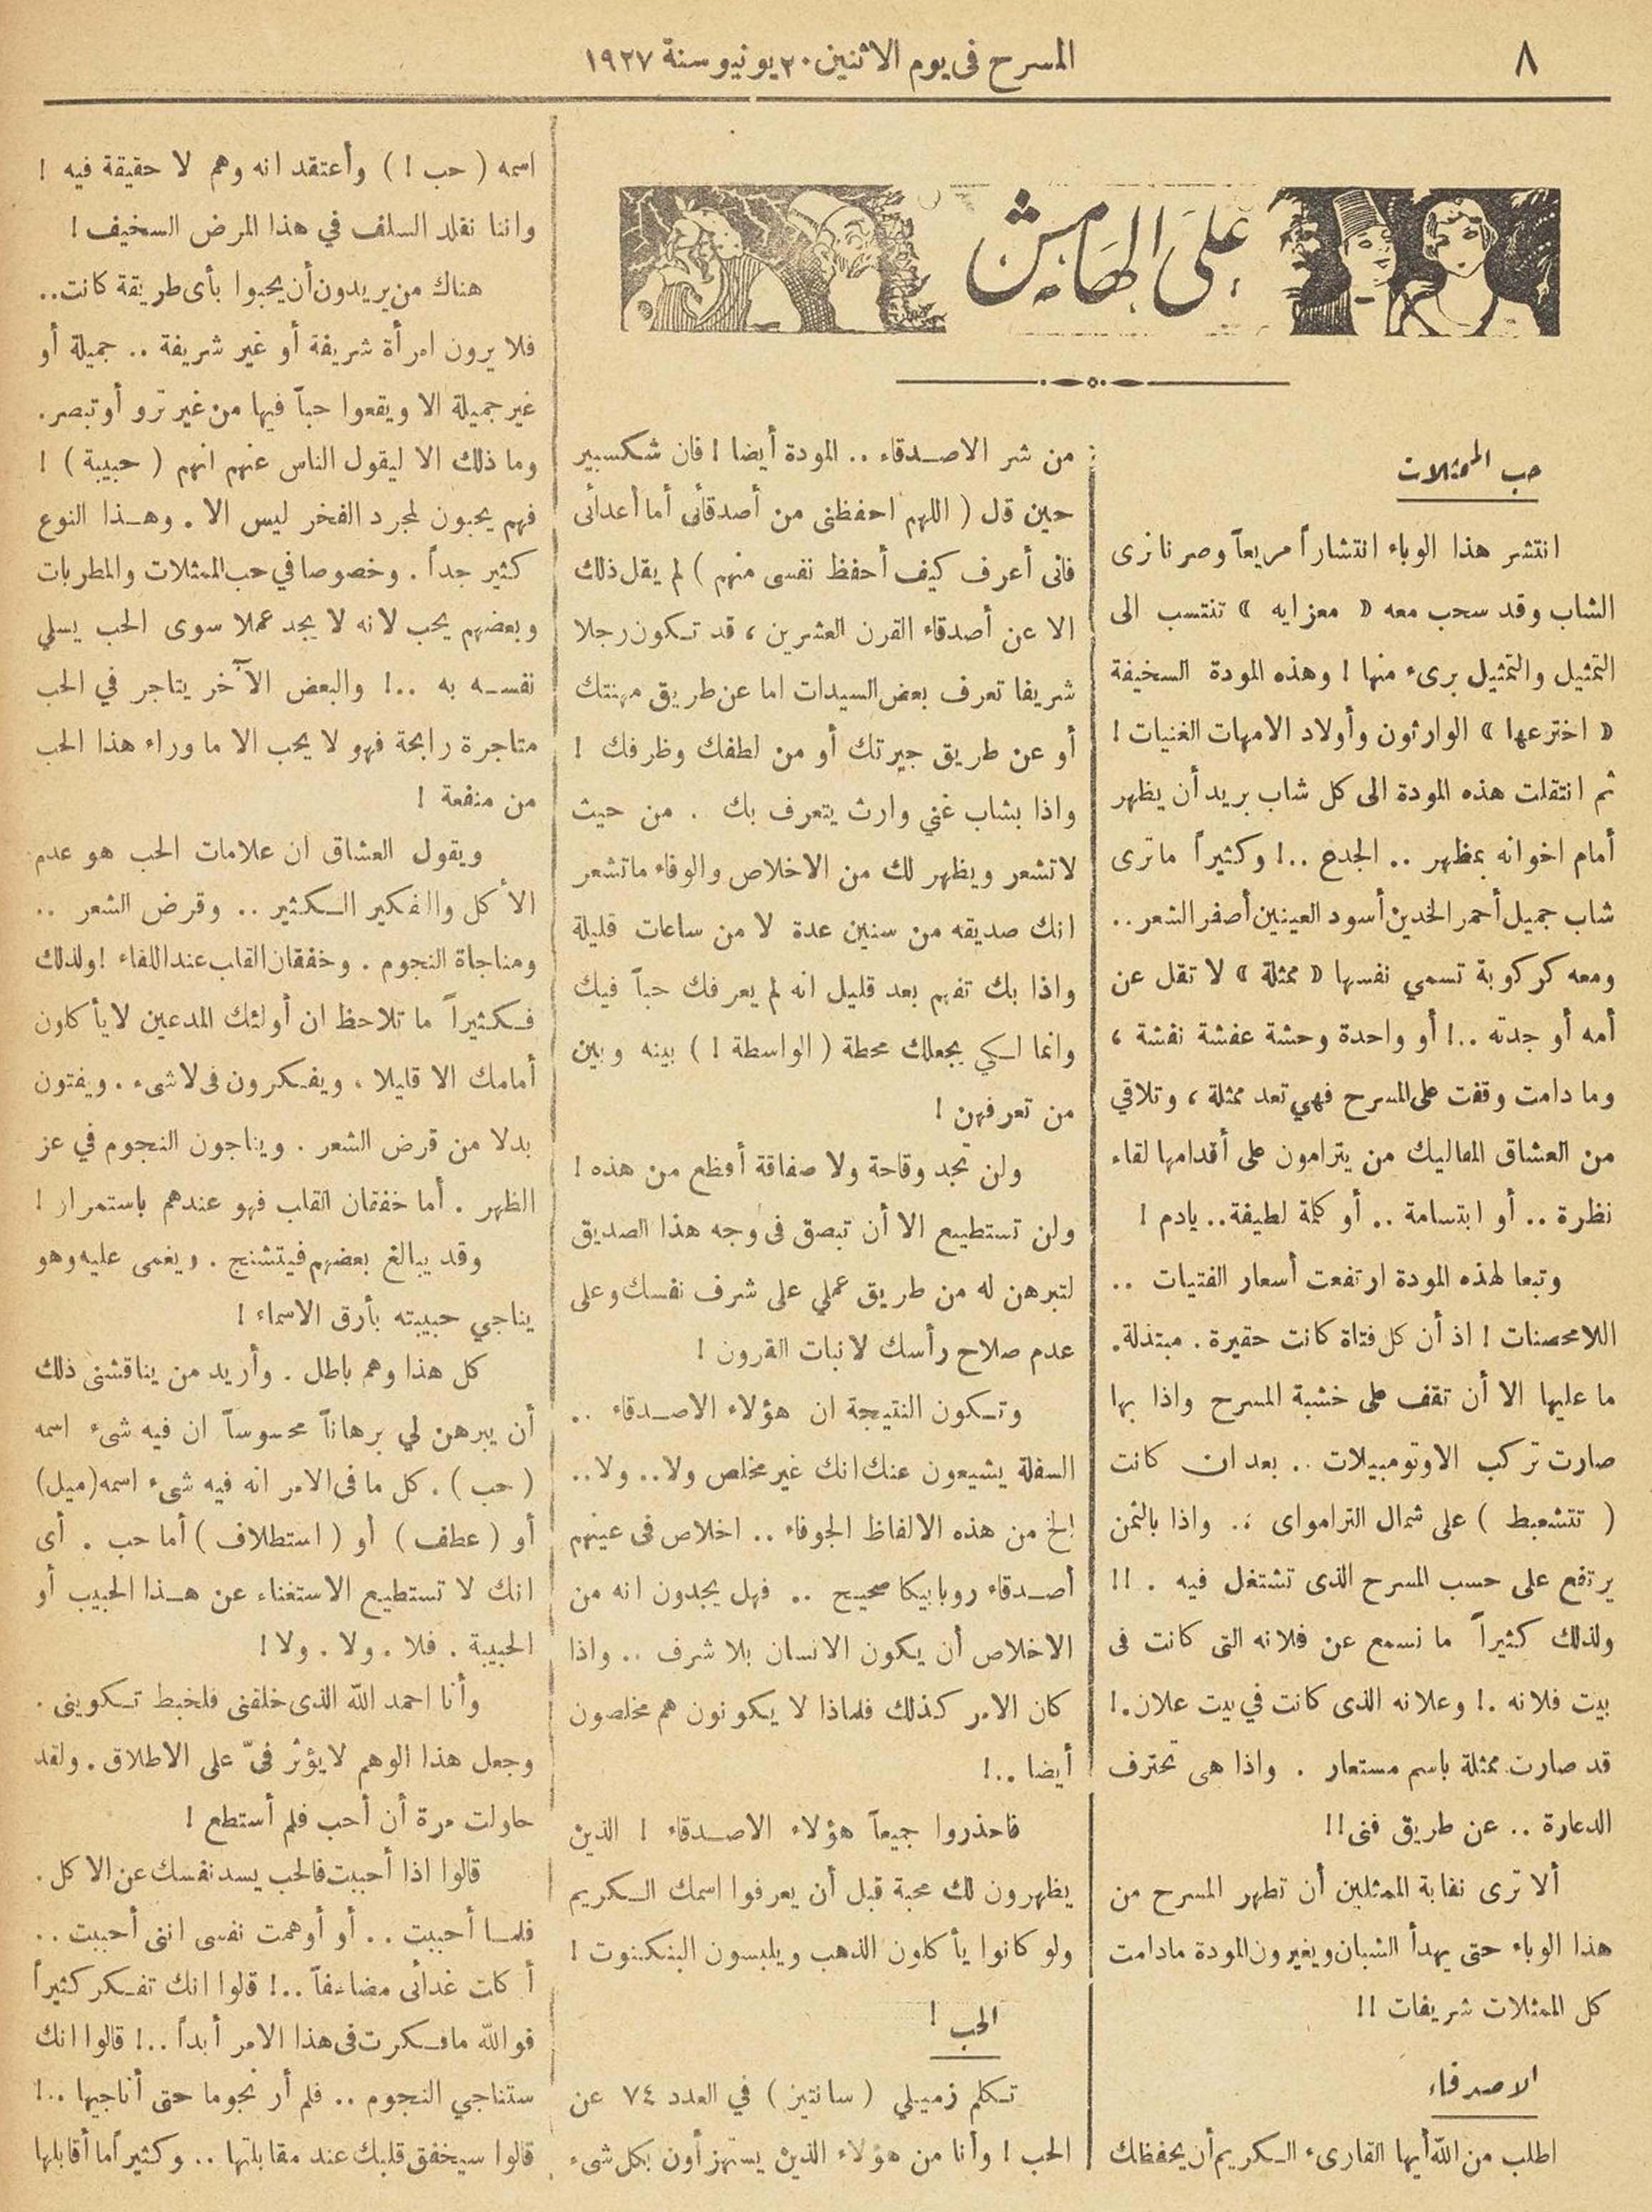 ٨
المسرح فى يوم الاثنين ٢٠ يونيو سنة ١٩٢٧
على الهامش
حب الممثلات
انتشر هذا الوباء انتشاراً مريعاً وصرنا نرى
الشاب وقد سحب معه « معزايه » تنتسب الى
التمثيل والتمثيل برىء منها ! وهذه المودة السخيفة
« اخترعها » الوارثون وأولاد الامهات الغنيات !
ثم انتقلت هذه المودة الى كل شاب يريد أن يظهر
أمام اخوانه بمظهر .. الجدع ..! وكثيراً ماترى
شاب جميل أحمر الخدين أسود العينين أصفر الشعر ..
ومعه كركوبة تسمي نفسها « ممثلة » لا تقل عن
أمه أو جدته ..! أو واحدة وحشة عفشة نفشة ،
وما دامت وقفت على المسرح فهي تعد ممثلة ، وتلاقي
من العشاق المماليك من يترامون على أقدامها لقاء
نظرة .. أو ابتسامة .. أو كلمة لطيفة .. يادم !
وتبعا لهذه المودة ارتفعت أسعار الفتيات ..
اللامحصنات ! اذ أن كل فتاة كانت حقيرة . مبتذلة .
ما عليها الا أن تقف على خشبة المسرح واذا بها
صارت تركب الاوتومبيلات .. بعد ان كانت
( تتشعبط ) على شمال الترامواى .. واذا بالثمن
يرتفع على حسب المسرح الذى تشتغل فيه . !!
ولذلك كثيراً ما نسمع عن فلانه التى كانت فى
بيت فلانه .! وعلانه الذى كانت في بيت علان .!
قد صارت ممثلة باسم مستعار . واذا هى تحترف
الدعارة .. عن طريق فنى !!
ألا ترى نقابة الممثلين أن تطهر المسرح من
هذا الوباء حتى يهدأ الشبان ويغيرون المودة مادامت
كل الممثلات شريفات !!
الاصدقاء
اطلب من الله أيها القارىء الكريم أن يحفظك
من شر الاصدقاء .. المودة أيضا ! فان شكسبير
حين قل ( اللهم احفظنى من أصدقأى أما أعدائى
فانى أعرف كيف أحفظ نفسى منهم ) لم يقل ذلك
الا عن أصدقاء القرن العشرين ، قد تكون رجلا
شريفا تعرف بعض السيدات اما عن طريق مهنتك
أو عن طريق جيرتك أو من لطفك وظرفك !
واذا بشاب غني وارث يتعرف بك . من حيث
لاتشعر ويظهر لك من الاخلاص والوفاء ماتشعر
انك صديقه من سنين عدة لا من ساعات قليلة
واذا بك تفهم بعد قليل انه لم يعرفك حباً فيك
وانما لكي يجعلك محطة ( الواسطة ! ) بينه وبين
من تعرفهن !
ولن تجد وقاحة ولا صفاقة أفظع من هذه !
ولن تستطيع الا أن تبصق فى وجه هذا الصديق
لتبرهن له من طريق عملي على شرف نفسك وعلى
عدم صلاح رأسك لانبات القرون !
وتكون النتيجة ان هؤلاء الاصدقاء ..
السفلة يشيعون عنك انك غير مخلص ولا .. ولا ..
الخ من هذه الالفاظ الجوفاء .. اخلاص فى عينهم
أصدقاء روبابيكا صحيح .. فهل يجدون انه من
الاخلاص أن يكون الانسان بلا شرف .. واذا
كان الامر كذلك فلماذا لا يكونون هم مخلصون
أيضا ..!
فاحذروا جميعاً هؤلاء الاصدقاء ! الذين
يظهرون لك محبة قبل أن يعرفوا اسمك الكريم
ولو كانوا يأكلون الذهب ويلبسون البنكنوت !
الحب !
تكلم زميلي ( سانتيز ) في العدد ٧٤ عن
الحب ! وأنا من هؤلاء الذين يستهزأون بكل شىء
اسمه ( حب ! ) وأعتقد انه وهم لا حقيقة فيه !
واننا نقلد السلف في هذا المرض السخيف !
هناك من يريدون أن يحبوا بأى طريقة كانت ..
فلا يرون امرأة شريفة أو غير شريفة .. جميلة أو
غير جميلة الا ويقعوا حباً فيها من غير ترو أو تبصر .
وما ذلك الا ليقول الناس عنهم انهم ( حبيبة ) !
فهم يحبون لمجرد الفخر ليس الا . وهذا النوع
كثير جداً . وخصوصا في حب الممثلات والمطربات
وبعضهم يحب لانه لا يجد عملا سوى الحب يسلي
نفسه به ..! والبعض الآخر يتاجر في الحب
متاجرة رابحة فهو لا يحب الا ما وراء هذا الحب
من منفعة !
ويقول العشاق ان علامات الحب هو عدم
الأكل والفكير الكثير .. وقرض الشعر ..
ومناجاة النجوم . وخفقان القلب عند اللقاء ! ولذلك
فكثيراً ما تلاحظ ان أولئك المدعين لايأكلون
أمامك الا قليلا . ويفكرون فى لاشىء . ويفتون
بدلا من قرض الشعر . ويناجون النجوم في عز
الظهر . أما خفقان القلب فهو عندهم باستمرار !
وقد يبالغ بعضهم فيتشنج . ويغمى عليه وهو
يناجي حبيبته بأرق الاسماء !
كل هذا وهم باطل . وأريد من يناقشنى ذلك
أن يبرهن لي برهاناً محسوساً ان فيه شىء اسمه
( حب ) . كل ما فى الامر انه فيه شىء اسمه (ميل)
أو ( عطف ) أو ( استطلاف ) أما حب . أى
انك لا تستطيع الاستغناء عن هذا الحبيب أو
الحبيبة . فلا . ولا . ولا !
وأنا احمد الله الذى خلقنى فلخبط تكوينى .
وجعل هذا الوهم لايؤثر فىّ على الاطلاق . ولقد
حاولت مرة أن أحب فلم أستطع !
قالوا اذا أحببت فالحب يسد نفسك عن الاكل .
فلما أحببت .. أو أوهمت نفسى اننى أحببت ..
أكلت غدائى مضاعفاً ..! قالوا انك تفكر كثيراً
فوالله مافكرت فى هذا الامر أبداً ..! قالوا انك
ستناجي النجوم .. فلم أر نجوما حتى أناجيها ..!
قالوا سيخفق قلبك عند مقابلتها .. وكثيراً ما أقابلها